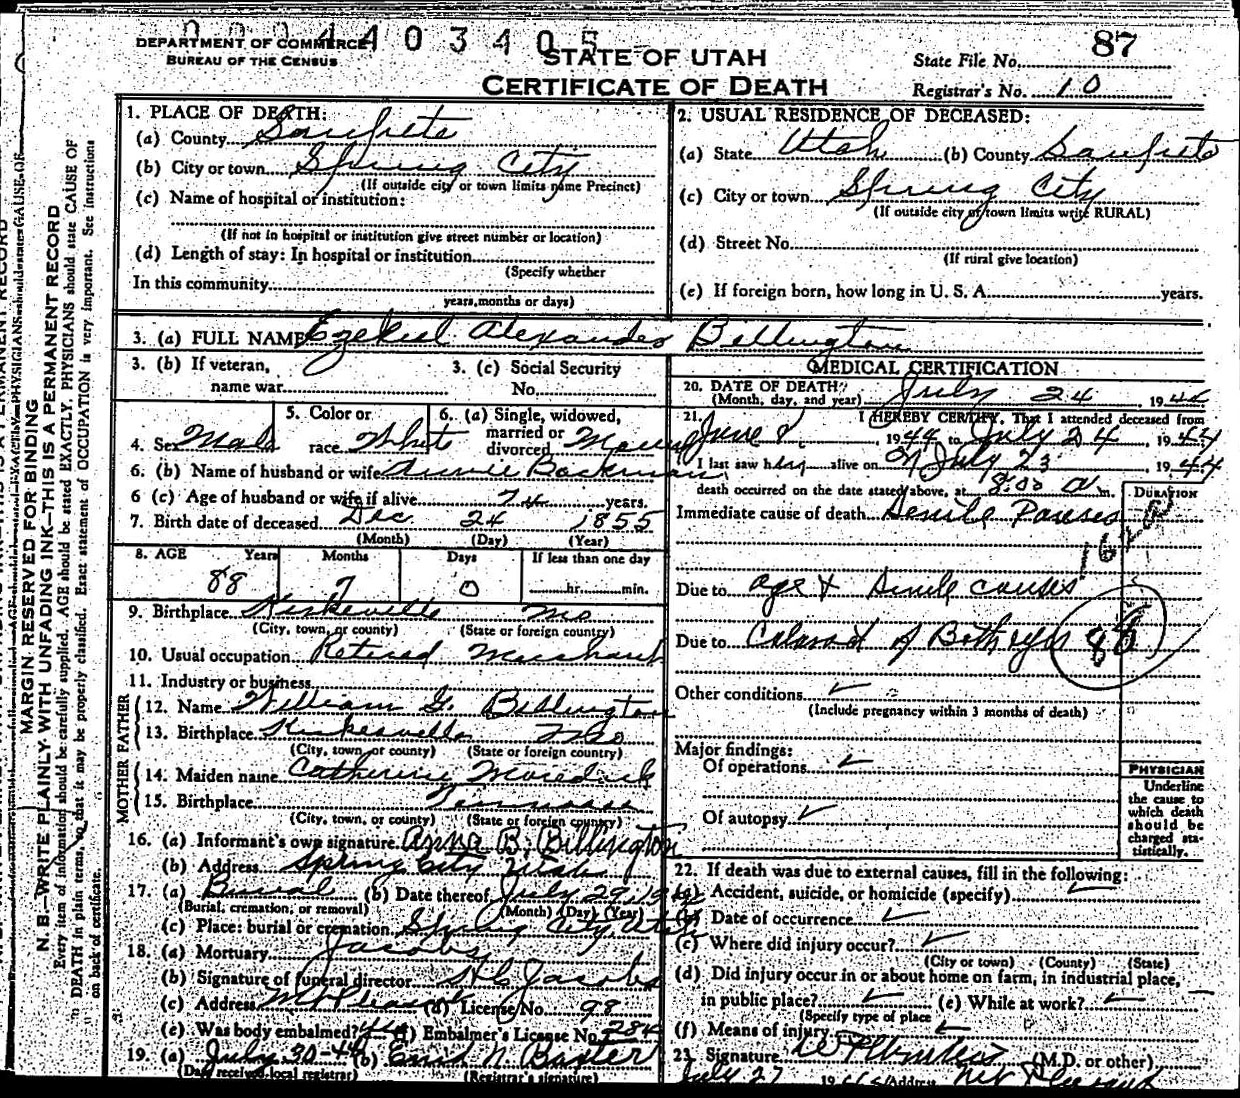 0004403405
DEPARTMENT OF COMMERCE
BUREAU OF THE CENSUS
STATE OF UTAH
CERTIFICATE OF DEATH
State File No. 87
Registrar's No. 10
1. PLACE OF DEATH:
(a) County Sanpete
(b) City or town Spring City
(If outside city or town limits name Precinct)
(c) Name of hospital or institution:
(If not in hospital or institution give street number or location)
(d) Length of stay: In hospital or institution
(Specify whether
In this community
years, months or days)
2. USUAL RESIDENCE OF DECEASED:
(a) State Utah (b) County Sanpete
(c) City or town Spring City
(If outside city or town limits write RURAL)
(d) Street No.
(If rural give location)
(e) If foreign born, how long in U. S. A. years.
3. (a) FULL NAME Ezekiel Alexander Billington
3. (b) If veteran, name war
3. (c) Social Security No.
4. Sex Male
5. Color or race White
6. (a) Single, widowed, married or divorced
6. (b) Name of husband or wife Annie Backman
6 (c) Age of husband or wife if alive 74 years.
7. Birth date of deceased Dec. 24 1855
(Month) (Day) (Year)
8. AGE Years Months Days If less than one day
88 7 0 hr. min.
9. Birthplace Kirkeville Mo
(City, town, or county) (State or foreign country)
10. Usual occupation Retired
11. Industry or business
FATHER
12. Name William G. Billington
13. Birthplace Kirkesville Mo
(City, town, or county) (State or foreign country)
MOTHER
14. Maiden name Catherine
15. Birthplace Tennessee
(City, town, or county) (State or foreign country)
16. (a) Informant's own signature Anna B. Billington
(b) Address Spring City Utah
17. (a) Burial (b) Date thereof July 29, 1944
(Burial, cremation, or removal) (Month) (Day) (Year)
(c) Place: burial or cremation Spring City, Utah
18. (a) Mortuary Jacobs
(b) Signature of funeral director Jacobs
(c) Address Mt Pleasant (d) License No. 98
(e) Was body embalmed? Yes (f) Embalmer's License No. 284
19. (a) July 30-44 (b) Enid N. Baxter
(Date received local registrar) (Registrar's signature)
MEDICAL CERTIFICATION
20. DATE OF DEATH: July 24, 1944
(Month, day, and year)
21. I HEREBY CERTIFY, That I attended deceased from
June 8, 1944 to July 24, 1944
I last saw him alive on July 23 1944
death occurred on the date stated above, at 8:00 a m.
DURATION
Immediate cause of death Senile
Due to age & Senile causes
Due to of Both eyes 88
Other conditions
(Include pregnancy within 3 months of death)
Major findings:
Of operations
Of autopsy
PHYSICIAN
Underline the cause to which death should be charged statistically.
22. If death was due to external causes, fill in the following:
(a) Accident, suicide, or homicide (specify)
(b) Date of occurrence
(c) Where did injury occur?
(City or town) (County) (State)
(d) Did injury occur in or about home on farm, in industrial place,
in public place? (e) While at work?
(Specify type of place
(f) Means of injury
23. Signature (M.D. or other)
July 27 1944 Address Mt Pleasant
MARGIN RESERVED FOR BINDING
N. B.—WRITE PLAINLY WITH UNFADING INK—THIS IS A PERMANENT RECORD
Every item of information should be carefully supplied. AGE should be stated EXACTLY. PHYSICIANS should state CAUSE OF
DEATH in plain terms, so that it may be properly classified. Exact statement of OCCUPATION is very important. See instructions
on back of certificate.